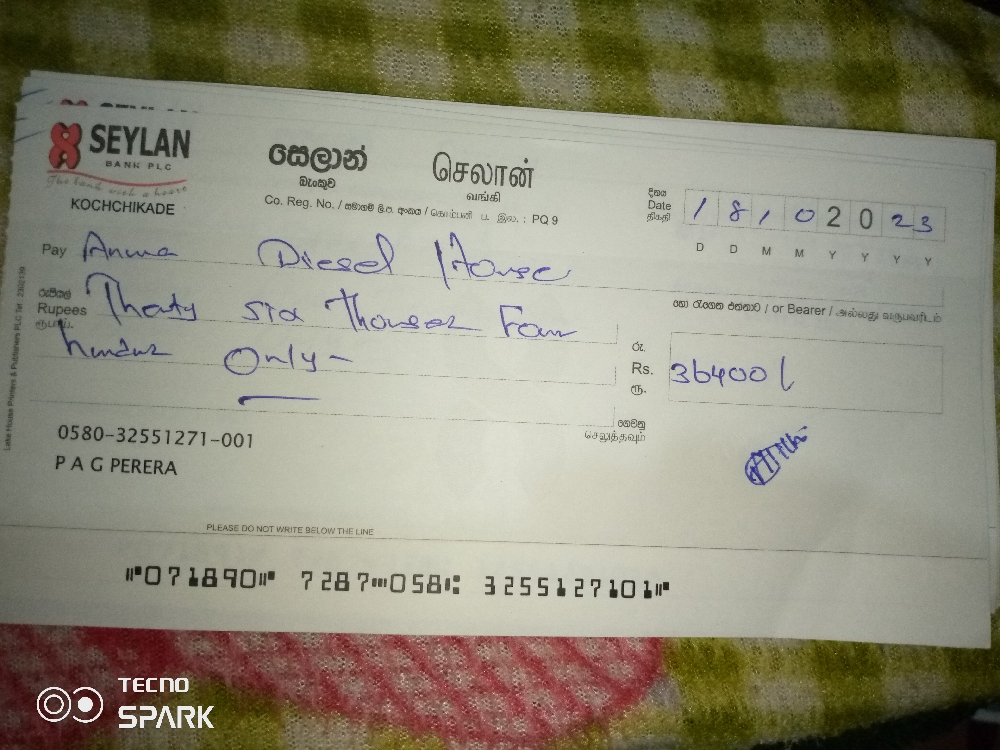 SEYLAN
BANK PLC
The bank with a heart
KOCHCHIKADE
සෙලාන් செலான்
බැංකුව வங்கி
Co. Reg. No. / සමාගම් ලි.ප. අංකය / கொம்பனி ப. இல. : PQ 9
දිනය
Date
திகதி
1 8 1 0 2 0 2 3
D D M M Y Y Y Y
Pay Diesel House
හෝ රැගෙන එන්නාට / or Bearer / அல்லது வருபவரிடம்
රුපියල්
Rupees Thirty six Thousand Four
ரூபாய்
hundred Only -
රු.
Rs. 36400/
ரூ.
ගෙවනු
செலுத்தவும்
0580-32551271-001
P A G PERERA
PLEASE DO NOT WRITE BELOW THE LINE
⑈071890⑈ 7287⑉058⑆ 3255127101⑈
Lake House Printers & Publishers PLC Tel : 2302139
TECNO
SPARK